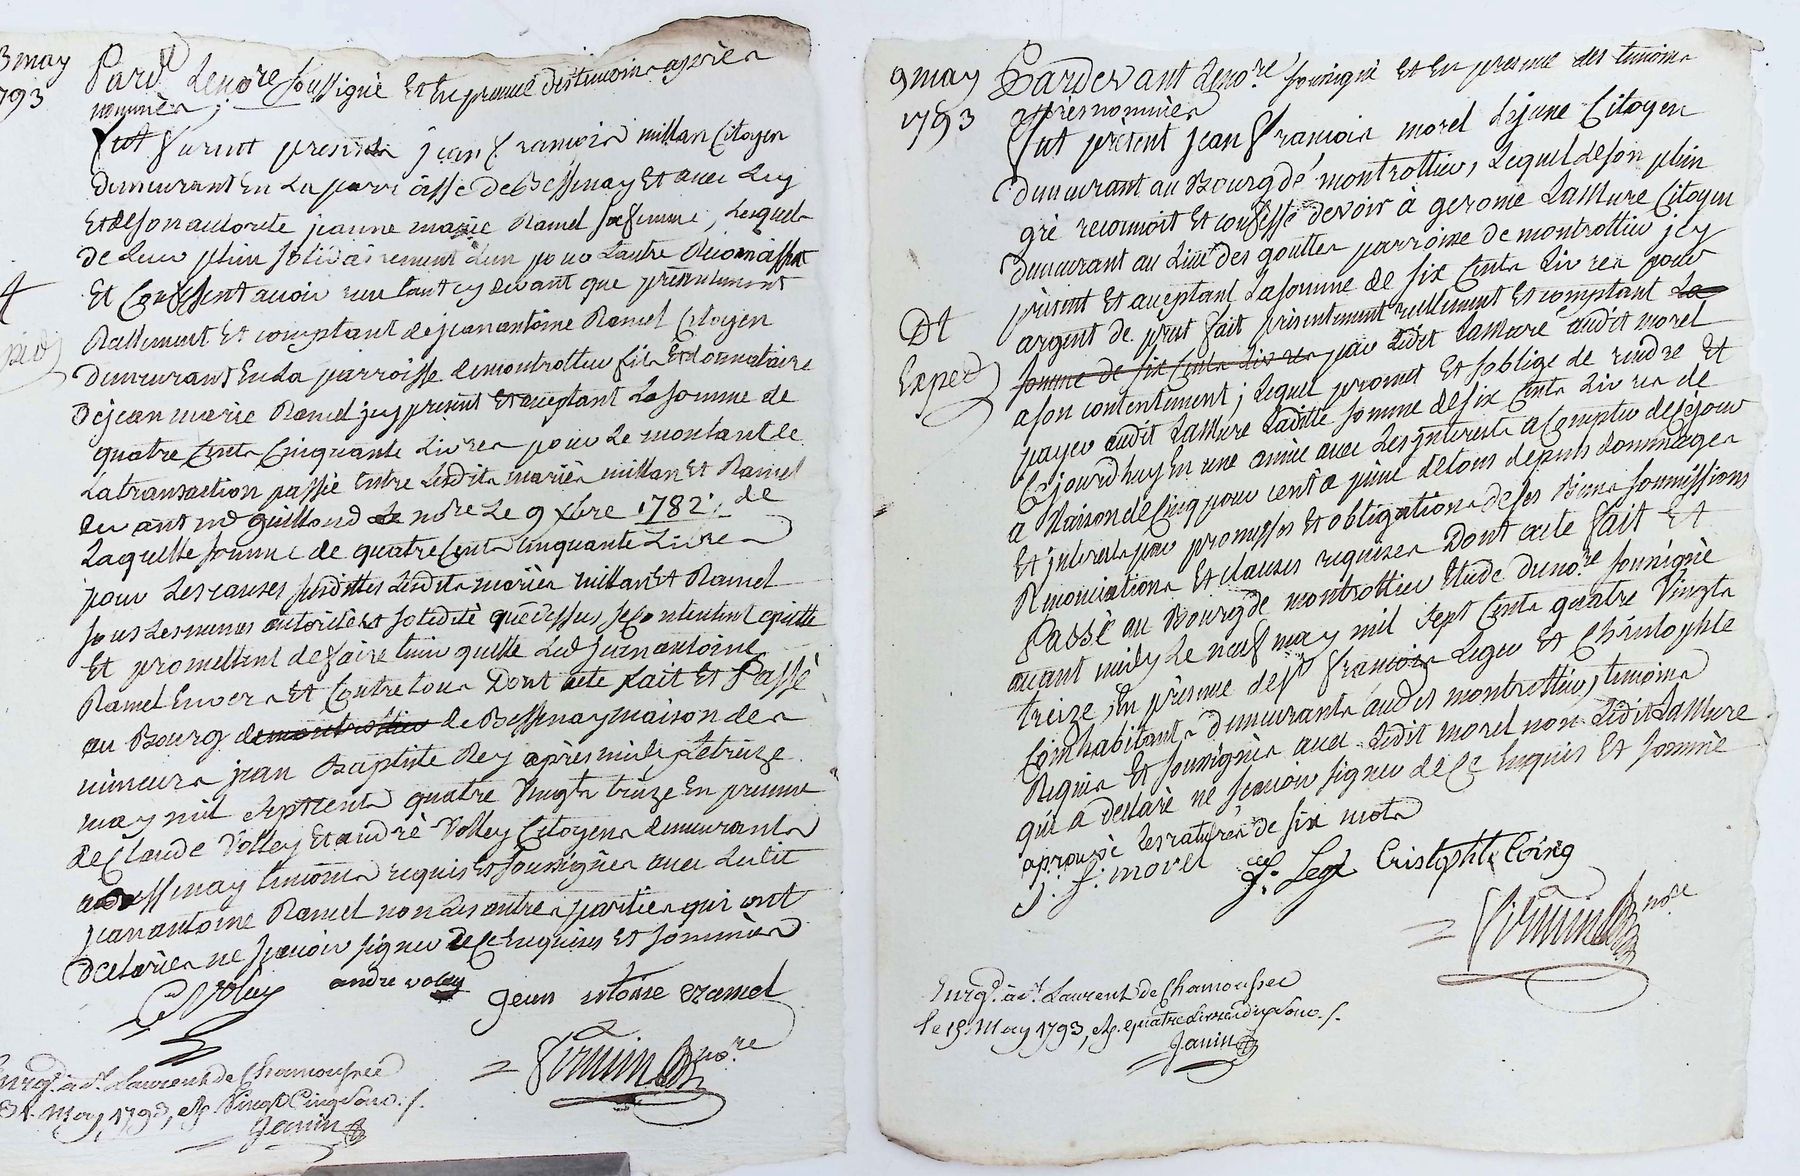 3 may
1793
Pard.t Le nore soussigné Et En presence des temoins apprès
nommés ;
furent presents jean francois millan Citoyen
demeurant En La parroisse de Bessenay Et avec Luy
Et de son autorité jeanne marie Ramel sa femme, Lesquels
de Leur plein solidairement L'un pour L'autre Reconoissent
Et Confessent avoir reçu tant cy devant que présentement
Réellement Et comptant de jean antoine Ramel Citoyen
demeurant En La parroisse de montrottier fils Et donnataire
De jean marie Ramel jcy présent Et acceptant La somme de
quatre Cents Cinquante Livres pour Le montant de
La transaction passée Entre Lesdits mariés millan Et Ramel
devant me guilloud nore Le 9 xbre 1782 ; de
Laquelle somme de quatre Cents cinquante Livres
pour Les causes susdittes Lesdits mariés millan Et Ramel
sous Les mêmes autorité Et solidité que dessus se contentent quitte
Et promettent de faire tenir quitte Led jean antoine
Ramel Envers Et Contre tous Dont acte fait Et Passé
au Bourg de montrottier de Bessenay maison des
mineurs jean Baptiste Rey après midy Le treize
may mil sept cents quatre Vingts treize En presence
de Claude Volley Et andré Volley Citoyens demeurants
a Bessenay temoins requis Et soussignés avec Ledit
jean antoine Ramel non Les autres parties qui ont
déclarées ne sçavoir signer de Ce Enquises Et sommées
C Volay
andre volay
jean antoine ramel
nore
Enrg.é à St Laurent de Chamousset
May 1793, Vingt Cinq sous
Janin
9 may
1793
Pardevant Le nore soussigné Et En presence des temoins
apprès nommés
fut présent jean francois morel Lejeune Citoyen
demeurant au Bourg de montrottier, Lequel de son plein
gré reconnoit Et confesse devoir à gerome LaMure Citoyen
demeurant au Lieu des gouttes parroisse de montrottier jcy
présent Et acceptant La somme de six Cents Livres pour
argent de pret fait présentement réellement Et comptant La
Dt
Exped
somme de six Cents Livres par Ledit LaMure audit morel
a son contentement ; Lequel promet Et soblige de rendre Et
payer audit LaMure Laditte somme de six Cents Livres de
Cejourdhuy En une année avec Les jnterests a Compter de Cejour
a Raison de Cinq pour cent a peine de tous depens dommages
Et jnterests par promesses Et obligations de ses Biens soumissions
Renonciations Et clauses requises Dont acte fait Et
Passé au Bourg de montrottier Etude du nore soussigné
avant midy Le neuf may mil sept Cents quatre Vingts
treize, En présence de francois Leger Et Christophle
Coing habitants demeurants audit montrottier, temoins
Requis Et soussignés avec Ledit morel non Ledit LaMure
qui a declaré ne sçavoir signer de Ce Enquis Et sommé
aprouvé Les ratures de six mots
j. f. morel
Cristophle Coing
nore
Enrg.é à St Laurent de Chamousset
le 15. May 1793, quatre Livres dix sous
Janin